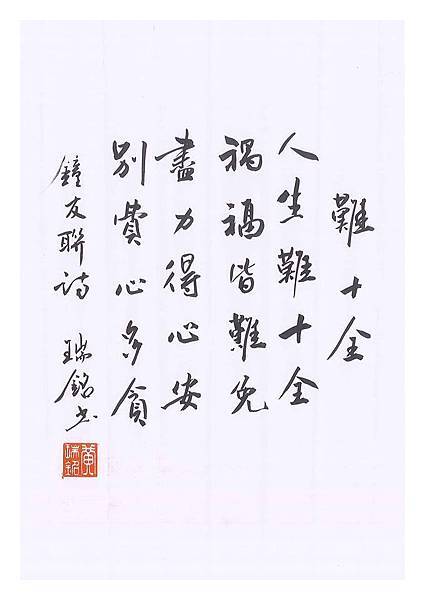 難十全
人生難十全
禍福皆難免
盡力得心安
別費心多貪
鐘友聯詩 瑞銘书
黃瑞銘